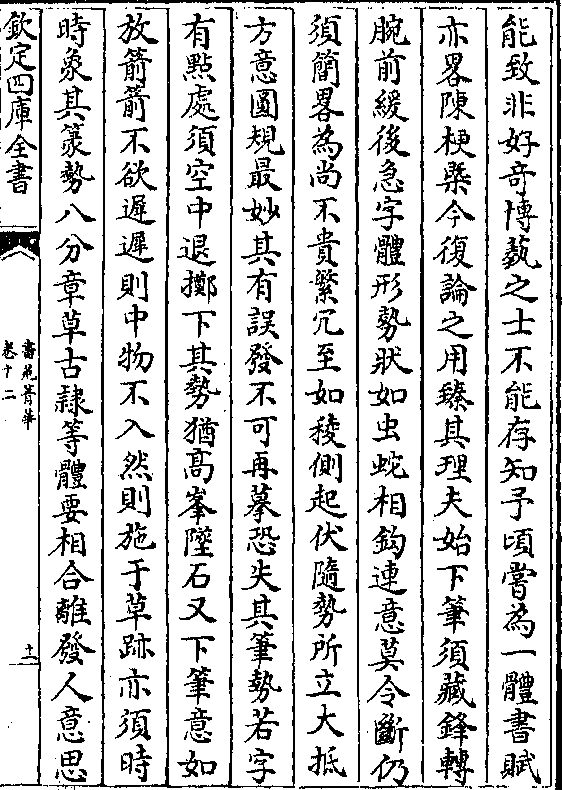 能致非好奇博藝之士不能存知予頃嘗為一體書賦
亦畧陳梗槩今復論之用臻其理夫始下筆須藏鋒轉
腕前緩後急字體形勢狀如虫蛇相鈎連意莫令斷仍
須簡畧為尚不貴繁冗至如稜側起伏隨勢所立大抵
方意圓規最妙其有誤發不可再摹恐失其筆勢若字
有點處須空中遥擲下其勢猶高峯墜石又下筆意如
放箭箭不欲遲遲則中物不入然則施于草跡亦須時
時象其篆勢八分章草古隸等體要相合離發人意思
欽定四庫全書
書苑菁華
卷十二
十一